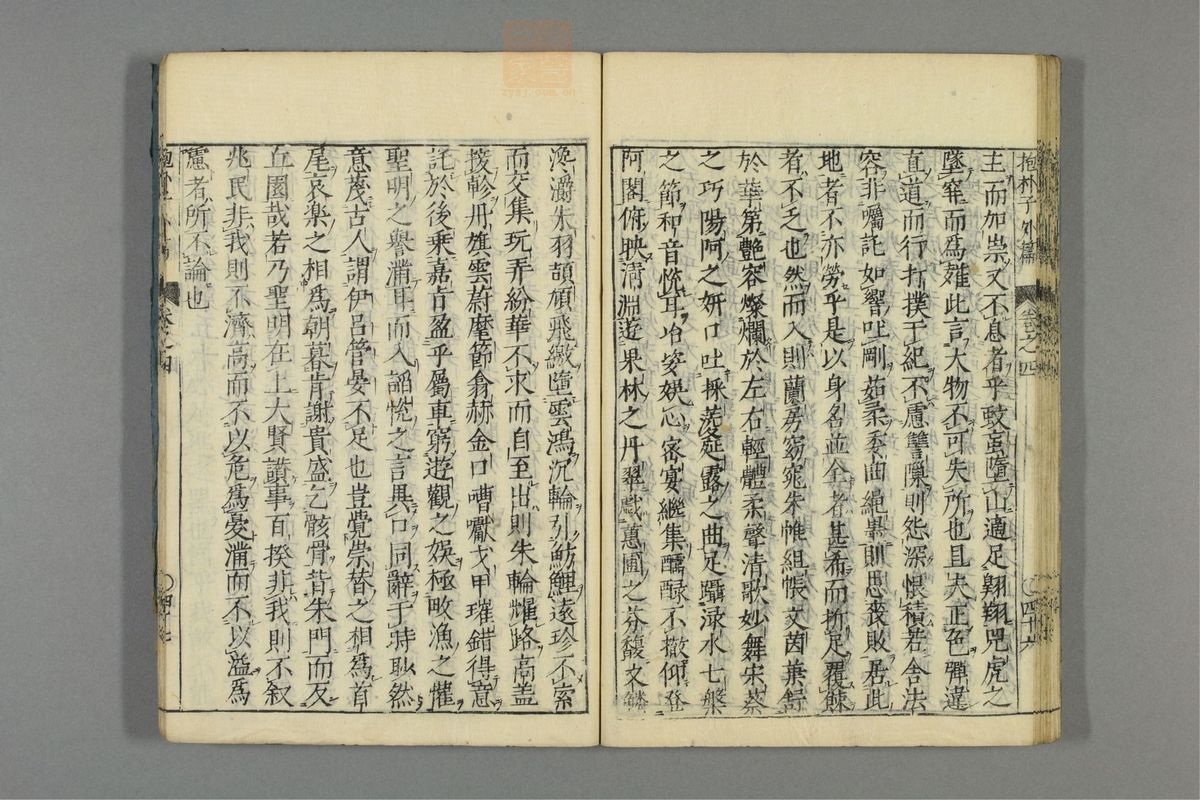 抱朴子外篇 卷之四 〇四十六
主而加祟又不息者乎蚊䖟墮山適足翱翔兕虎之
墜穽而為虀此言大物不可失所也且夫正色彈違
直道而行打撲干紀不慮讐隙則怨深恨積若舍法
容非囑託如響吐剛茹柔委曲繩墨則忠喪敗居此
地者不亦勞乎是以身名並全者甚希而折足覆餗
者不乏也然而入則蘭房窈窕朱帷組帳文茵兼舒
於華第艷容燦爛於左右輕體柔聲清歌妙舞宋蔡
之巧陽阿之妍口吐採菱延露之曲足躡淥水七槃
之節和音悅耳冶姿娛心密宴繼集醽醁不撤仰登
阿閣俯映清淵遊果林之丹翠戲蕙圃之芬馥文鱗
瀺灂朱羽頡頏飛繳墮雲鴻沉輪引魴鯉遠珍不索
而交集玩弄紛華不求而自至出則朱輪耀路高盖
接軫丹旗雲蔚麾節翕赫金口嘈㘔戈甲璀錯得意
託於後乗嘉旨盈乎屬車窮遊觀之娛極畋漁之懽
聖明之譽滿耳而入諂悅之言異口同辭于時眇然
意蔑古人謂伊呂管晏不足也豈覺崇替之相為首
尾哀楽之相為朝暮肯謝貴盛乞骸骨背朱門而反
丘園哉若乃聖明在上大賢讃事百揆非我則不叙
兆民非我則不濟高而不以危為憂滿而不以溢為
慮者所不論也
〇四十七
zysj.com.cn